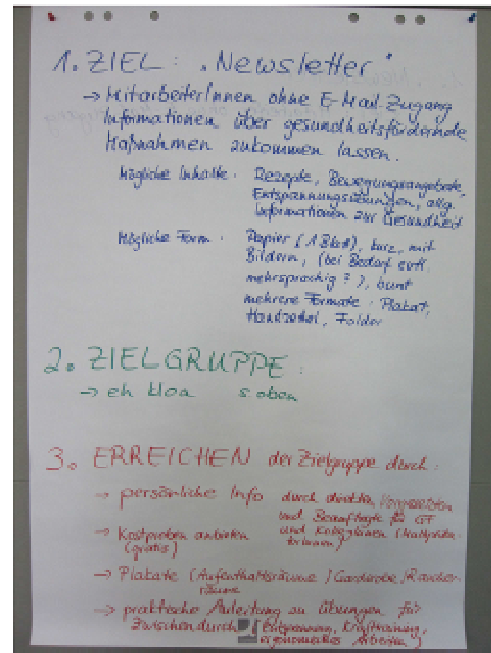 1. ZIEL: "Newsletter"
→ MitarbeiterInnen ohne E-Mail-Zugang
Informationen über gesundheitsfördernde
Maßnahmen zukommen lassen.
Mögliche Inhalte: Rezepte, Bewegungsangebote,
Entspannungsübungen, allg.
Informationen zur Gesundheit
Mögliche Form: Papier (1 Blatt), kurz, mit
Bildern, (bei Bedarf evtl.
mehrsprachig?), bunt
mehrere Formate: Plakat,
Handzettel, Folder
2. ZIELGRUPPE:
→ eh kloa s oben
3. ERREICHEN der Zielgruppe durch:
→ persönliche Info durch direkten Vorgesetzten
und Beauftragte für GF
→ Kostproben anbieten und KollegInnen (Multiplika-
(gratis) torInnen)
→ Plakate (Aufenthaltsräume / Garderobe / Raucher-
räume
→ praktische Anleitung zu Übungen für
Zwischendurch (Entspannung, Krafttraining,
ergonomisches Arbeiten)